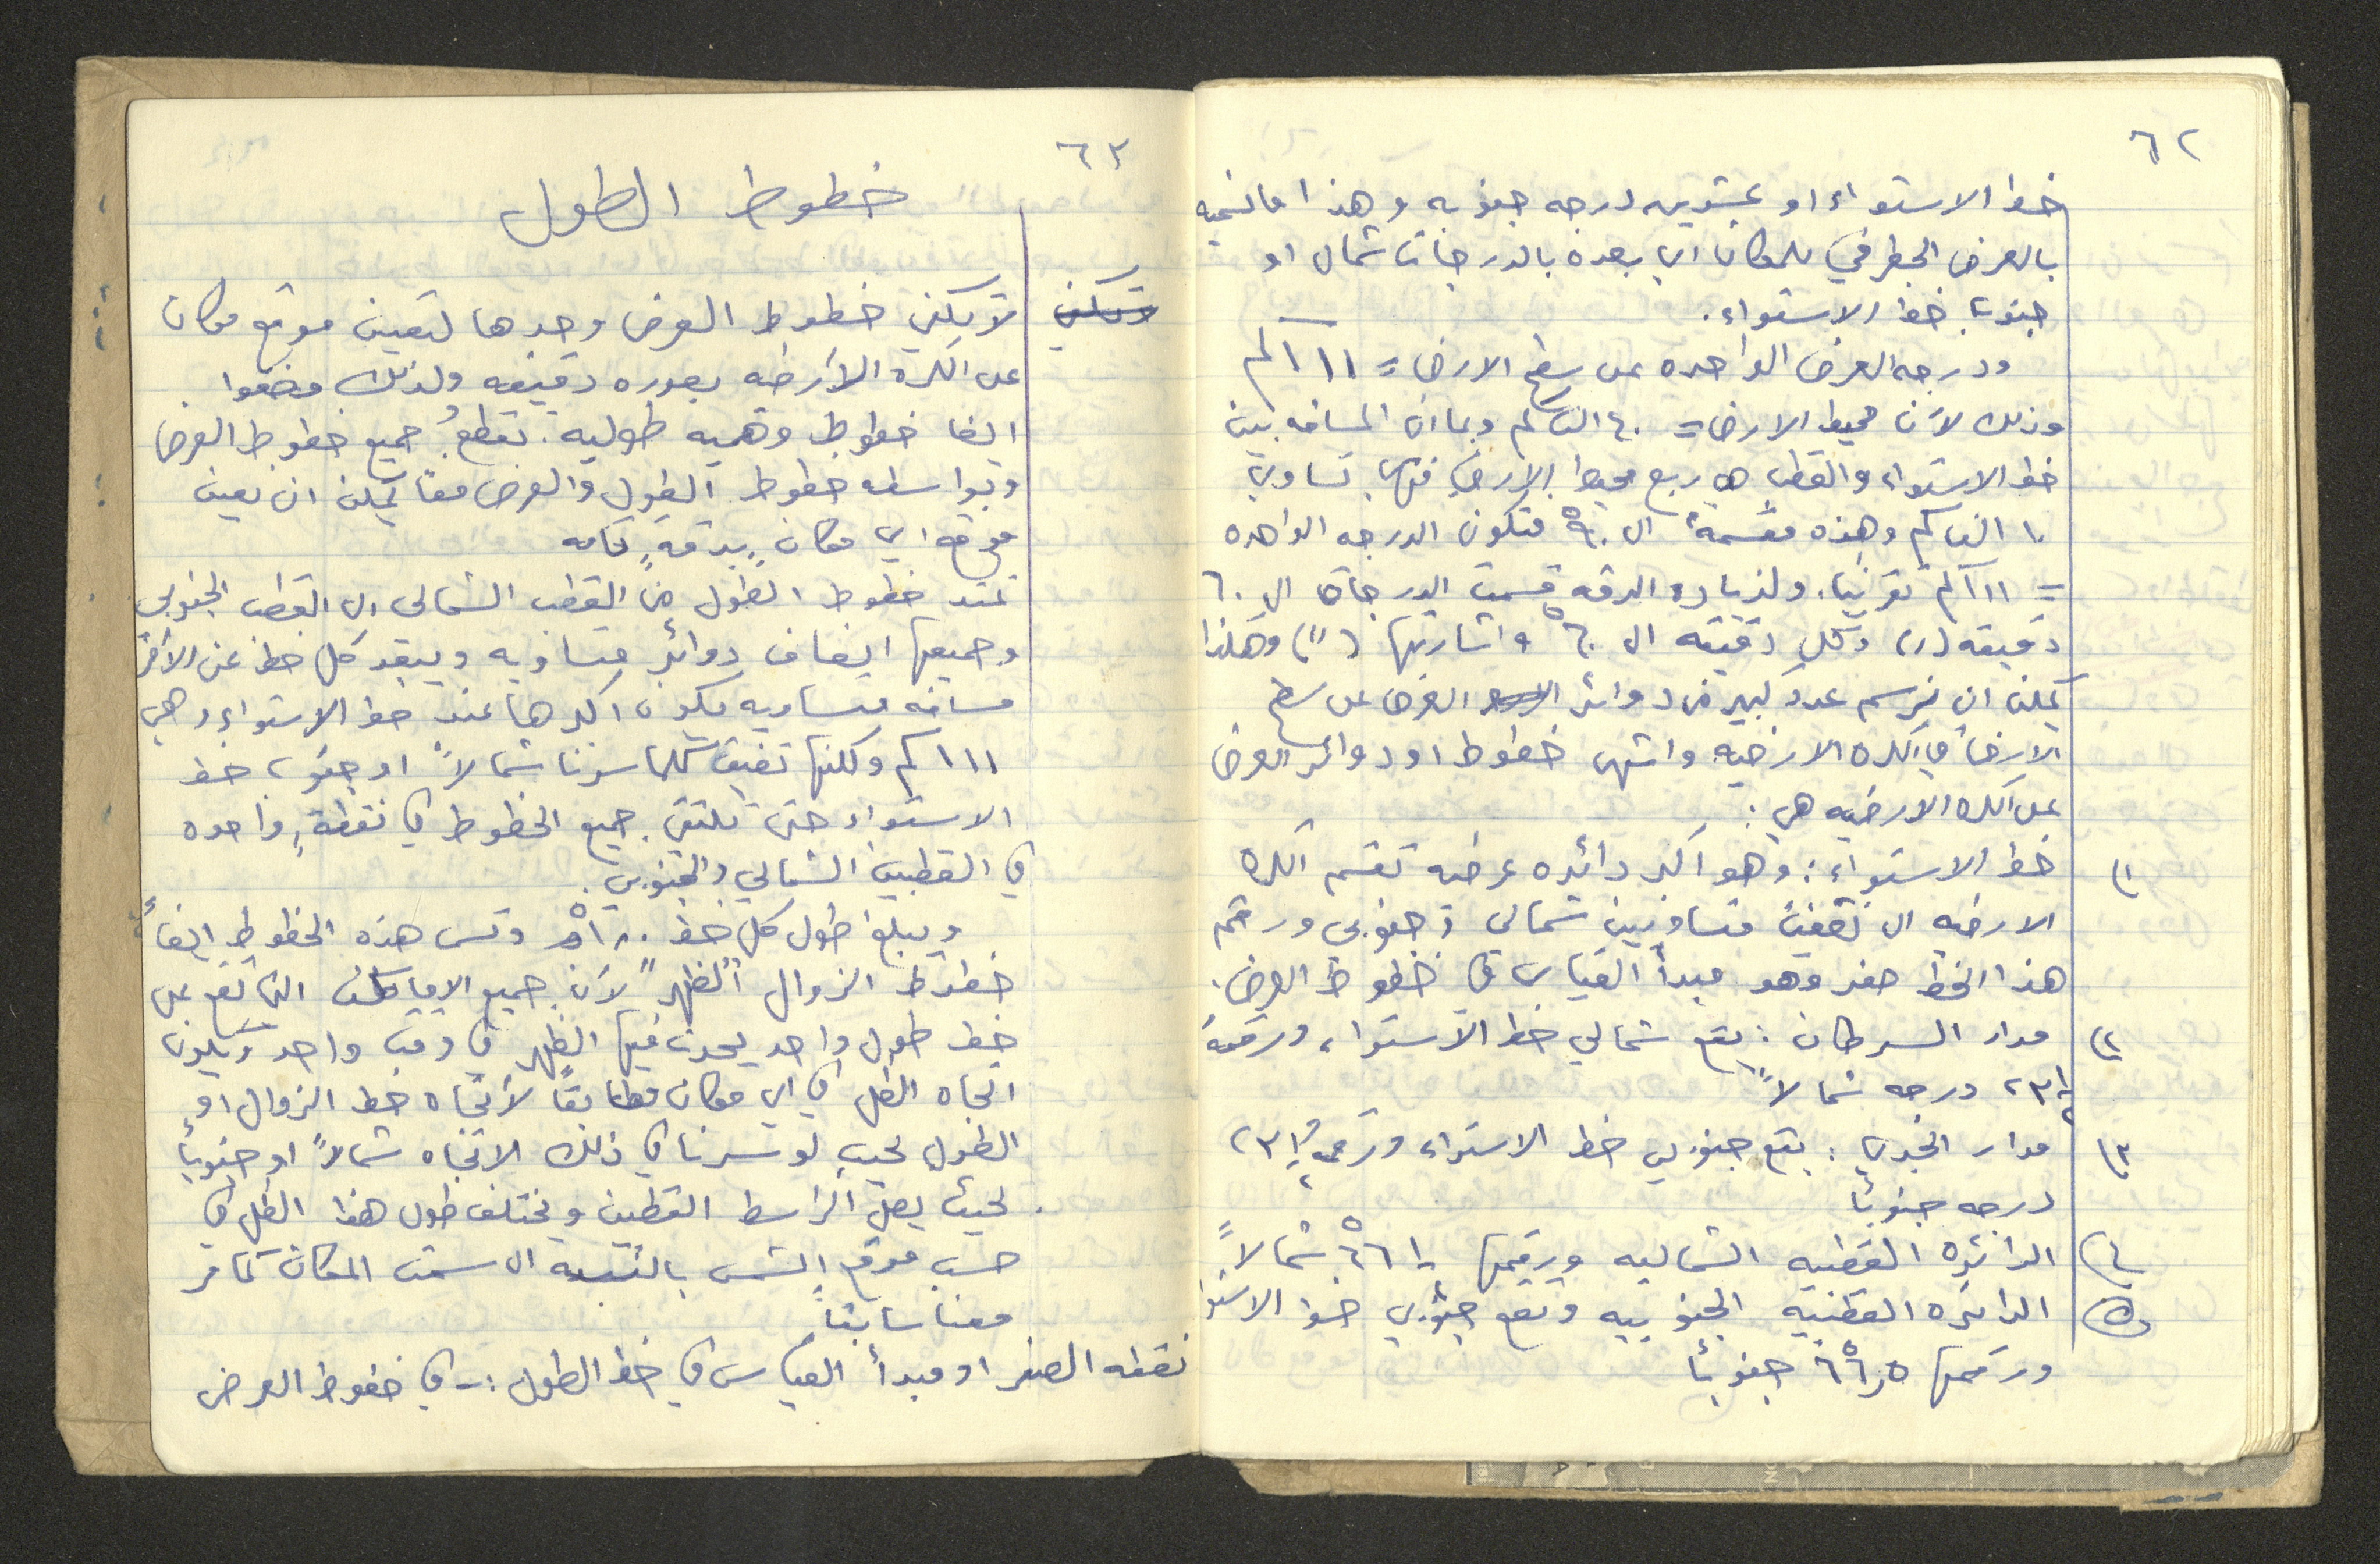 ٦٢
خط الاستواء او عشرين درجه جنوبه وهذا ما نسميه
بالعرض الجغرافي للمكان اي بعده بالدرجات شمال او
جنوب خط الاستواء.
ودرجه العرض الواحده على سطح الارض = ١١١ كم
وذلك لأن محيط الارض = ٤٠ الف كم وبما ان المسافه بين
خط الاستواء والقطب هي ربع محيط الارض فهي تساوي
١٠ الف كم وهذه مقسمة الى ٩٠° فتكون الدرجه الواحده
= ١١١ كم تقريبا. ولزياده الدقه قسمت الدرجات الى ٦٠
دقيقه (،) وكل دقيقه الى ٦٠ واشارتها (") وهكذا
يمكن ان نرسم عدد كبير من دوائر العرض على سطح
الارض في الكره الارضيه واشهر خطوط او دوائر العرض
على الكره الارضيه هي:
١) خط الاستواء: وهو اكبر دائره عرضيه تقسم الكره
الارضيه الى نصفين متساويين شمالي وجنوبي ورقم
هذا الخط صفر وهو مبدأ القياس في خطوط العرض.
٢) مدار السرطان: يقع شمالي خط الاستواء ورقمه
٢٣½ درجه شمالاً
٣) مدار الجدي: يقع جنوبي خط الاستواء ورقمه ٢٣½
درجه جنوباً
٤) الدائره القطبيه الشماليه ورقمها ½٦٦° شمالاً
٥) الدائره القطبيه الجنوبيه وتقع جنوبي خط الاستوا
ورقمها ٦٦٫٥° جنوباً
٦٣
خطوط الطول
لا تكفي خطوط العرض وحدها لتعيين موقع مكان
على الكره الارضيه بصوره دقيقه ولذلك وضعوا
ايضا خطوط وهميه طوليه. تقطع جميع خطوط العرض
وبواسطه خطوط الطول والعرض معاً يمكن ان نعين
موقع اي مكان بدقةٍ تامه
تمتد خطوط الطول من القطب الشمالي الى القطب الجنوبي
وجميعها انصاف دوائر متساويه ويبعد كل خط عن الآخر
مسافه متساويه يكون اكبرها عند خط الاستواء وهي
١١١ كم ولكنها تضيق كلما سرنا شمالاً او جنوب خط
الاستواء حتى تلتقي جميع الخطوط في نقطةٍ واحده
في القطبين الشمالي والجنوبي.
ويبلغ طول كل خط ١٨٠° وتسمى هذه الخطوط ايضاً
خطوط الزوال "الظهر" لأن جميع الاماكن التي تقع على
خط طول واحد يحدث فيها الظهر في وقت واحد ويكون
اتجاه الظل في اي مكان مطابقاً لأتجاه خط الزوال او
الطول بحيث لو سرنا في ذلك الاتجاه شمالاً او جنوباً
لحيث يصل الى وسط القطبين ويختلف طول هذا الظل في
حسب موقع الشمس بالنسبه الى سمت المكان كما مر
معنا سابقاً
نقطه الصفر او مبدأ القياس في خط الطول :- في خطوط العرض